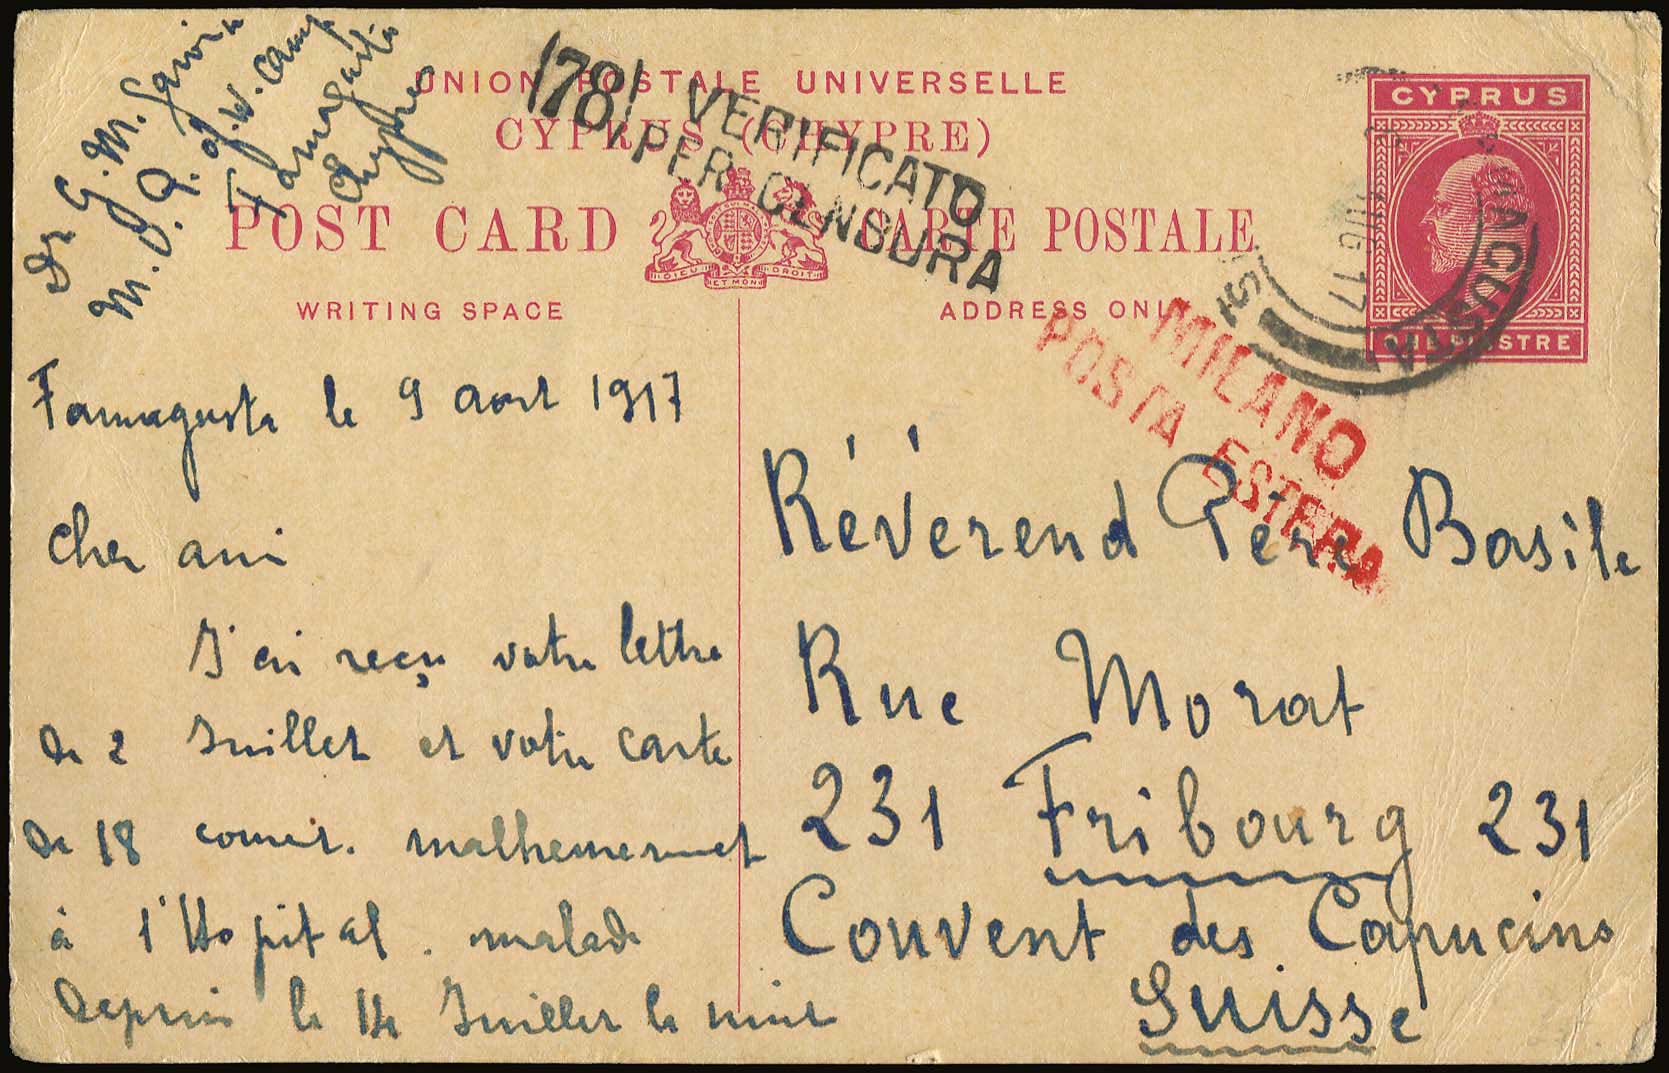 Dr G. M.
M. O. P. of. W. Camp
Famagusta
Chypres
UNION POSTALE UNIVERSELLE
CYPRUS (CHYPRE)
POST CARD CARTE POSTALE
DIEU ET MON DROIT
WRITING SPACE
ADDRESS ONLY
CYPRUS
ONE PIASTRE
78
VERIFICATO
PER CENSURA
FAMAGUSTA
AUG 17
MILANO
POSTA ESTERA
Famagusta le 9 aout 1917
Cher ami
J'ai reçu votre lettre
de 2 Juillet et votre carte
de 18 malheureusement
à l'Hopital. malade
depuis le 14 Juillet
Révérend Père Basile
Rue Morat
231 Fribourg 231
Couvent des Capucins
Suisse